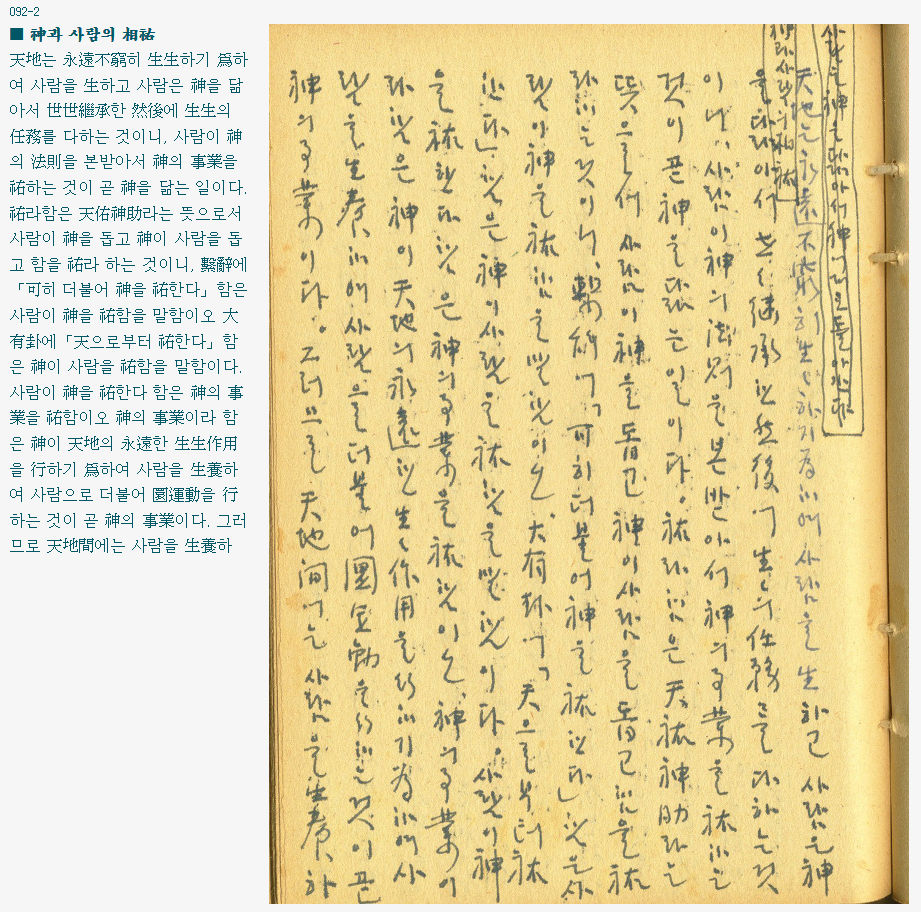 092-2
■ 神과 사람의 相祐
天地는 永遠不窮히 生生하기 爲하
여 사람을 生하고 사람은 神을 닮
아서 世世繼承한 然後에 生生의
任務를 다하는 것이니, 사람이 神
의 法則을 본받아서 神의 事業을
祐하는 것이 곧 神을 닮는 일이다.
祐라함은 天佑神助라는 뜻으로서
사람이 神을 돕고 神이 사람을 돕
고 함을 祐라 하는 것이니, 繫辭에
「可히 더불어 神을 祐한다」함은
사람이 神을 祐함을 말함이오 大
有卦에「天으로부터 祐한다」함
은 神이 사람을 祐함을 말함이다.
사람이 神을 祐한다 함은 神의 事
業을 祐함이오 神의 事業이라 함
은 神이 天地의 永遠한 生生作用
을 行하기 爲하여 사람을 生養하
여 사람으로 더불어 圜運動을 行
하는 것이 곧 神의 事業이다. 그러
므로 天地間에는 사람을 生養하
神과 사람의 相祐
天地는 永遠不窮히 生々하기 爲하여 사람을 生하고 사람은 神
을 닮아서 世々繼承한 然後에 生々의 任務를 다하는 것
이니, 사람이 神의 法則을 본받아서 神의 事業을 祐하는
것이 곧 神을 닮는 일이다. 祐라함은 天祐神助라는
뜻으로서 사람이 神을 돕고 神이 사람을 돕고 함을 祐
라 하는 것이니, 繫辭에 「可히 더불어 神을 祐한다」함은 사
람이 神을 祐함을 말함이오, 大有卦에 「天으로부터 祐
한다」함은 神이 사람을 祐함을 말함이다. 사람이 神
을 祐한다 함은 神의 事業을 祐함이오, 神의 事業이
라 함은 神이 天地의 永遠한 生々作用을 行하기 爲하여 사
람을 生養하여 사람으로 더불어 圜運動을 行하는 것이 곧
神의 事業이다. 그러므로 天地間에는 사람을 生養하